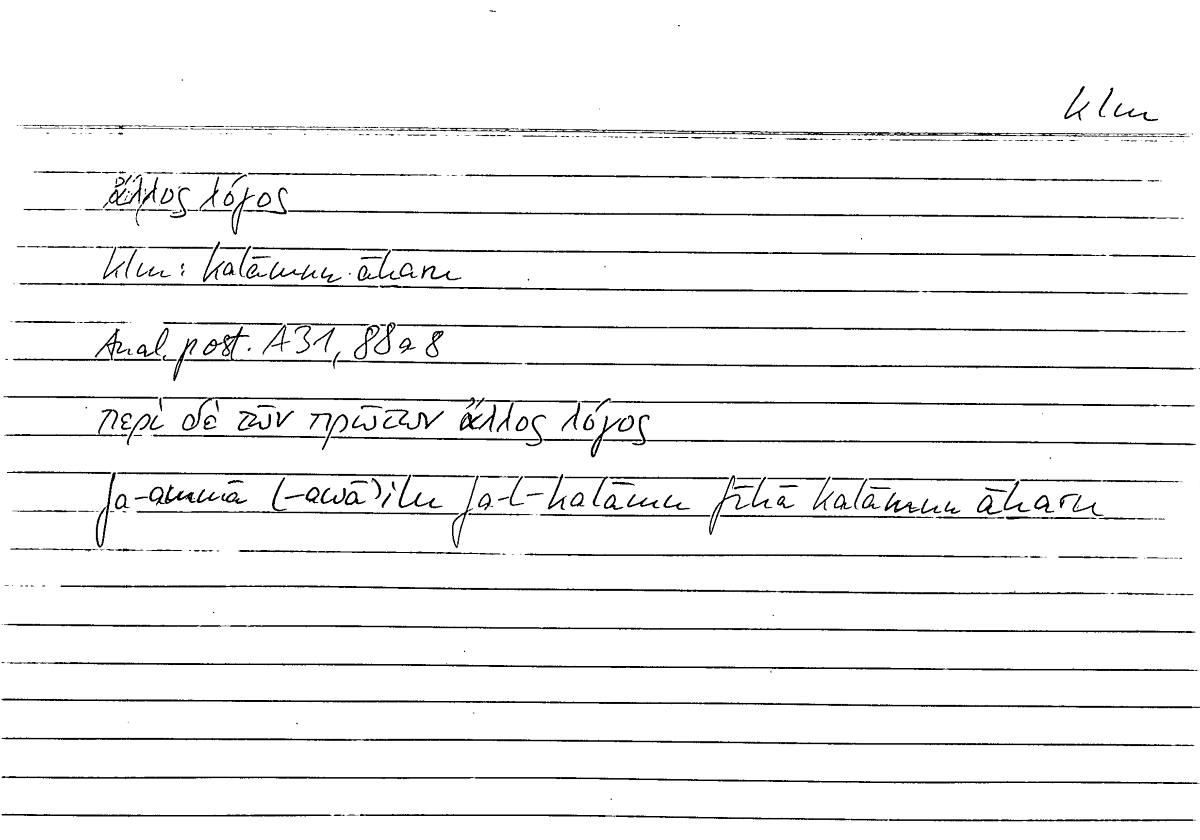 klm
ἄλλος λόγος
klm: kalāmun āharu
Anal. post. A31, 88a8
περὶ δὲ τῶν πρώτων ἄλλος λόγος
fa-ammā l-awāʾilu fa-l-kalāmu fīhā kalāmun āharu